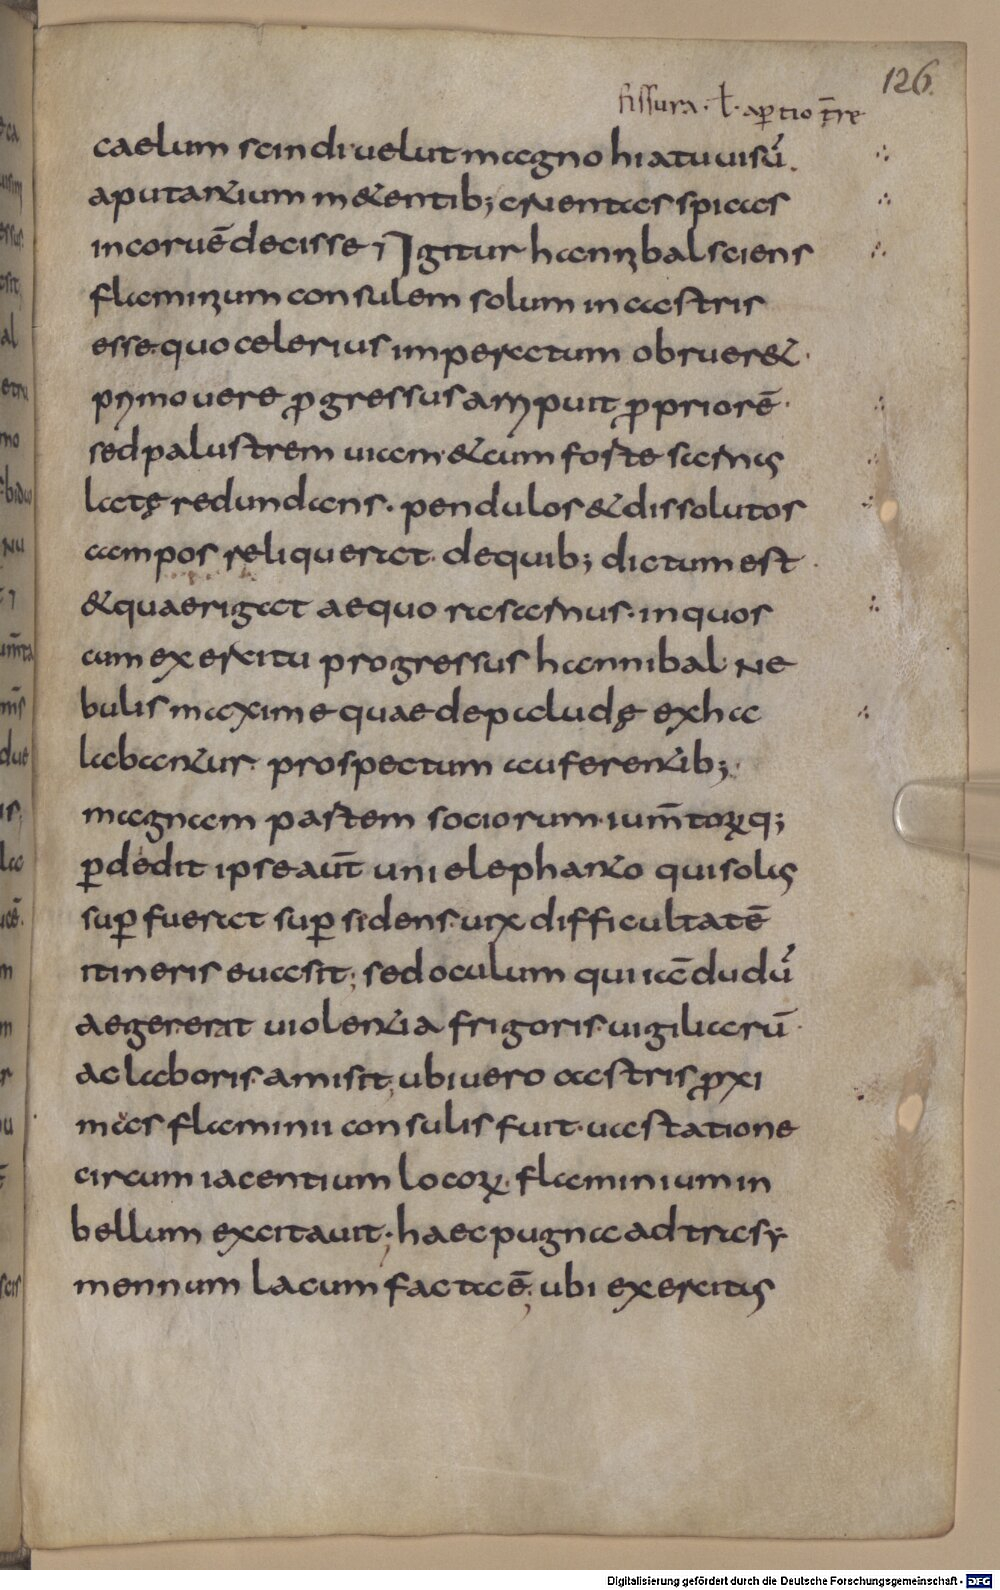 126.
fissura · ł · aꝑtio t̄re
caelum scindi uelut magno hiatu uisū.
aput antium m&entib; cruentas spicas
in coruē decisse ; Igitur hannibal sciens
flaminium consulem solum in castris
esse. quo celerius imperatum obruer&.
primo uere ꝓgressus arripuit ꝓpriorē.
sed palustrem uiam. &cum forte sarnus
latę redundans. pendulos & dissolutos
campos reliquerat. dequib; dictum est
& quae rigat aequora sarnus. in quos
cum exercitu progressus hannibal. ne
bulis maxime quae de paludę exha
labantur. prospectum auferentib;.
magnam partem sociorum. ium̄torꝝq;
ꝑdedit ipse aūt uni elephanto qui solus
suꝑ fuerat suꝑ sidens. uix difficultatē
itineris euasit; sed oculum qui iā dudū
aeger erat uiolentia frigoris. uigiliarū.
ac laboris. amisit; ubi uero castris ꝓxi
mas flaminii consulis fuit. uastatione
circum iacentium locoꝝ. flaminium in
bellum excitauit; haec pugna ad trasy
mennum lacum facta ē; ubi exercitus
Digitalisierung gefördert durch die Deutsche Forschungsgemeinschaft - DFG